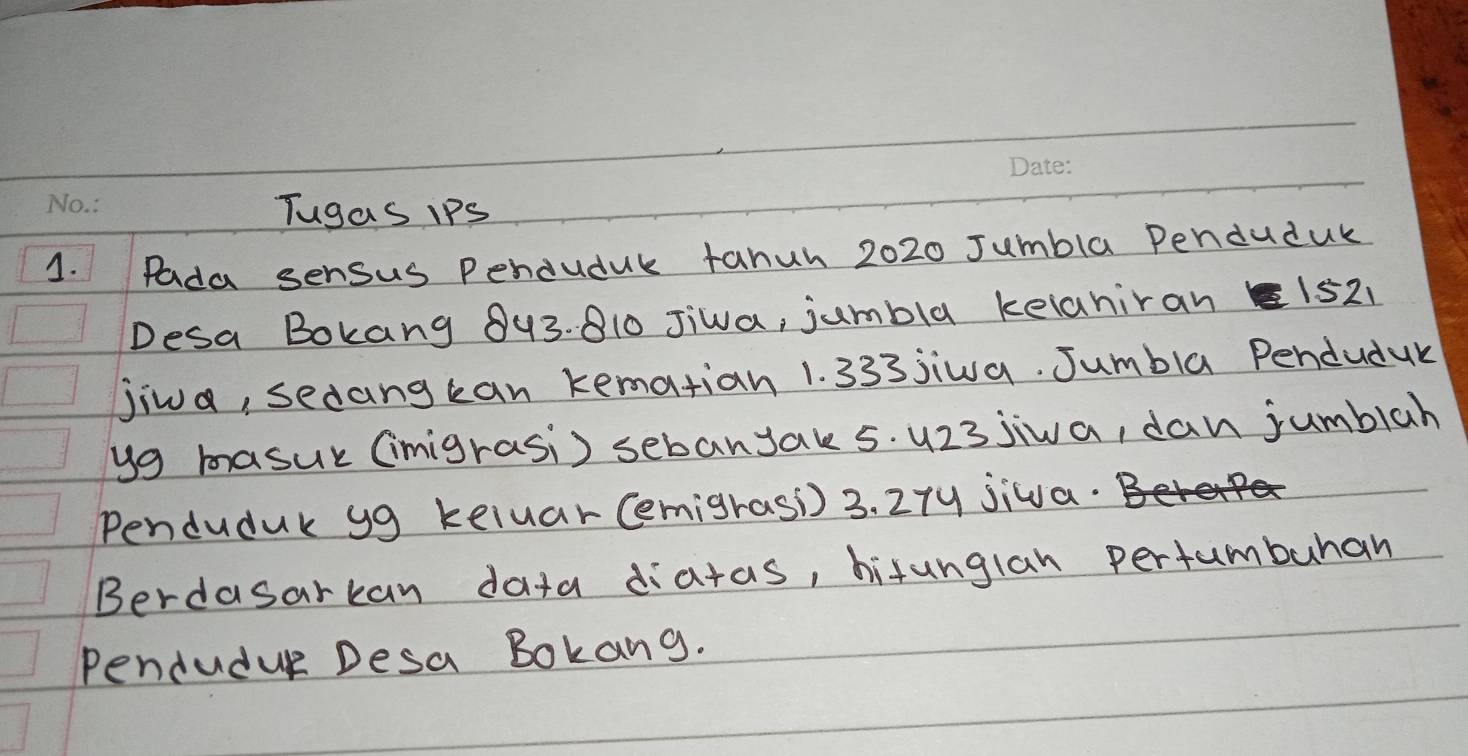 Date:
No.:
Tugas iPS
1. Pada sensus Penduduk tahun 2020 Jumbla Penduduk
Desa Bokang 843.810 Jiwa, jumbla kelahiran 1521
jiwa, sedangkan kematian 1.333 jiwa. Jumbla Penduduk
yg masuk (imigrasi) sebanyak 5.423 jiwa, dan jumblah
Penduduk yg keluar (emigrasi) 3.274 jiwa. Berapa
Berdasarkan data diatas, hitunglah pertumbuhan
Penduduk Desa Bokang.